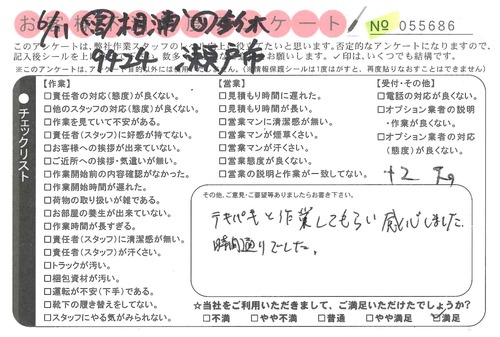 6/11
9424 瀬戸市
№ 055686
このアンケートは、弊社作業スタッフの
立てたいと思います。否定的なアンケートになりますので、
※このアンケートは、
(※情報保護シールは1度はがすと、再度貼りなおすことはできません)
チェックリスト
【作業】
□責任者の対応(態度)が良くない。
□他のスタッフの対応(態度)が良くない。
□作業を見ていて不安がある。
□責任者(スタッフ)に好感が持てない。
□お客様への挨拶が出来ていない。
□ご近所への挨拶・気遣いが無い。
□作業開始前の内容確認がなかった。
□作業開始時間が遅れた。
□荷物の取り扱いが雑である。
□お部屋の養生が出来ていない。
□作業時間が長すぎる。
□責任者(スタッフ)に清潔感が無い。
□責任者(スタッフ)が汗くさい。
□トラックが汚い。
□梱包資材が汚い。
□運転が不安(下手)である。
□靴下の履き替えをしてない。
□スタッフにやる気がみられない。
【営業】
□見積もり時間に遅れた。
□見積もり時間が長い。
□営業マンに清潔感が無い。
□営業マンが煙草くさい。
□営業マンが汗くさい。
□営業態度が良くない。
□営業の説明と作業が一致してない。
【受付・その他】
□電話の対応が良くない。
□オプション業者の説明
・作業が良くない。
□オプション業者の対応
(態度)が良くない。
その他、ご意見・ご要望等ありましたらお書き下さい。
テキパキと作業してもらい感心しました。
時間通りでした。
☆当社をご利用いただきまして、ご満足いただけたでしょうか?
□不満 □やや不満 □普通 □やや満足 ☑満足